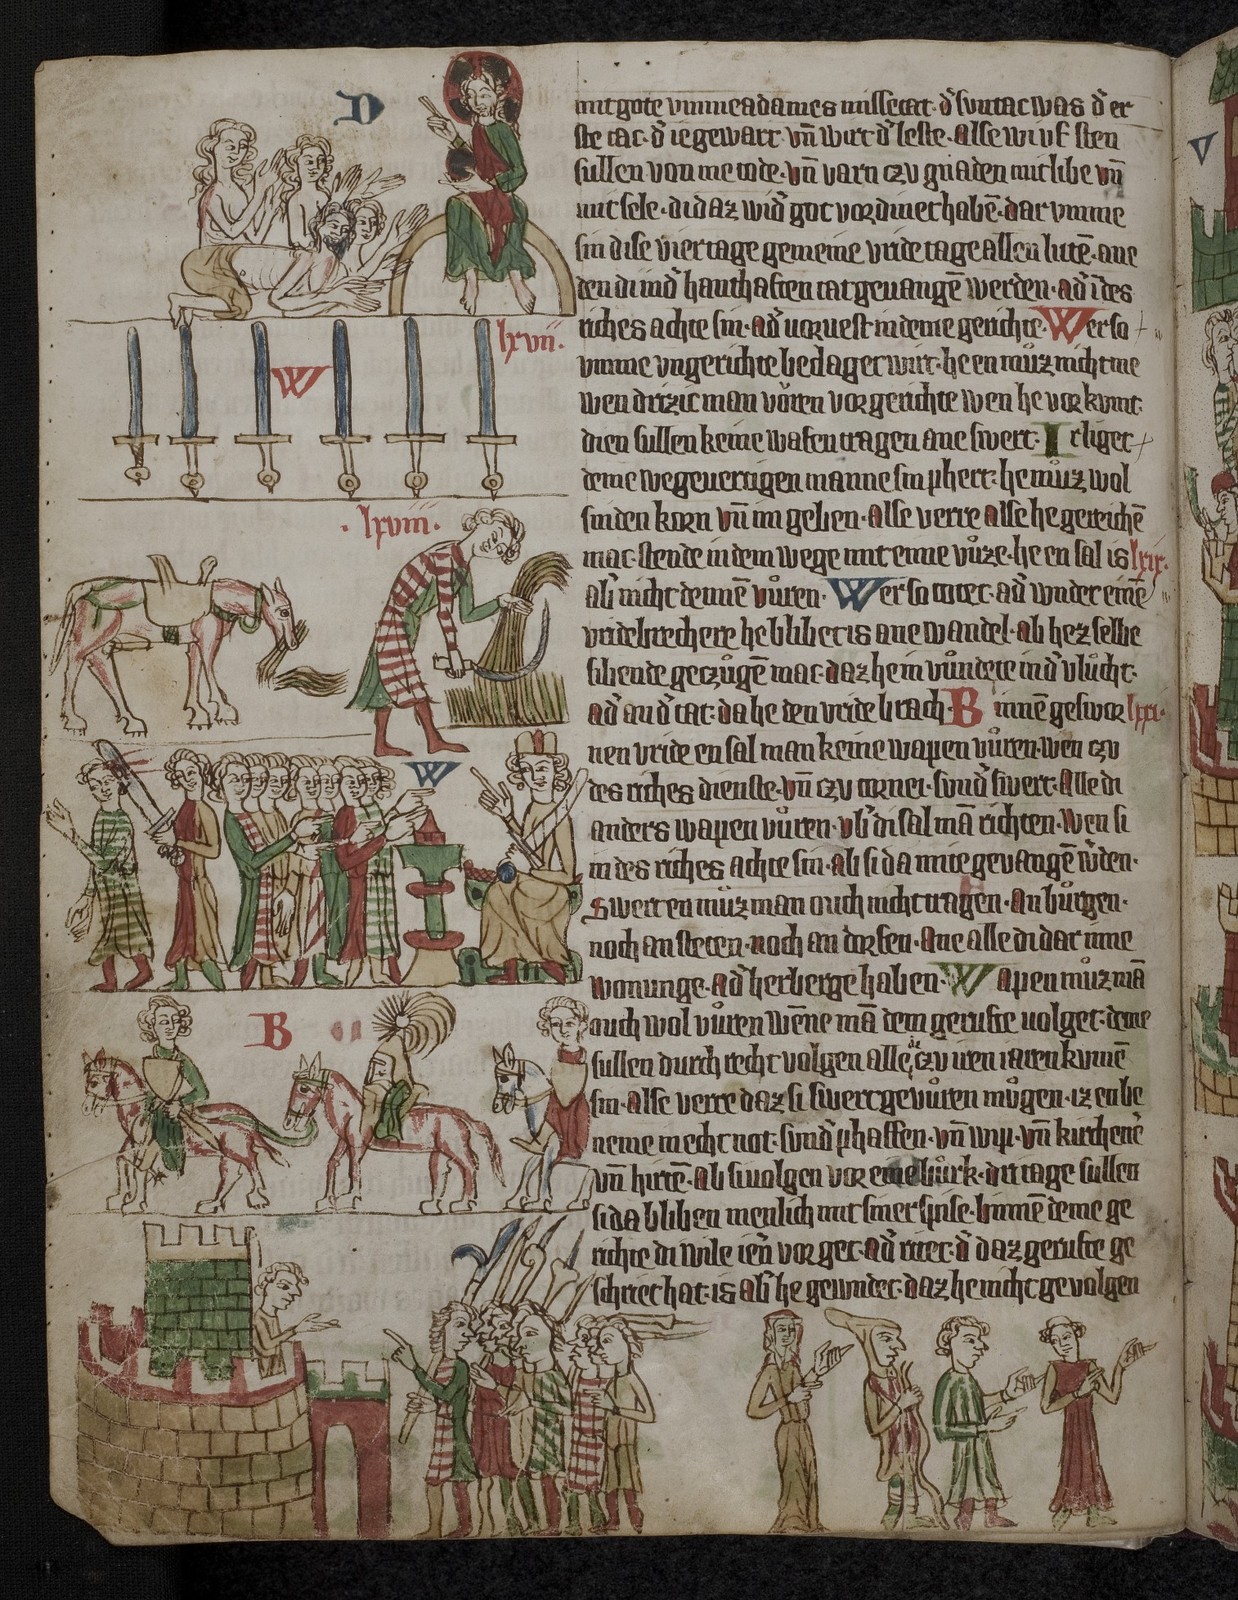 D
mit gote vmme adames missetat. d̄ suntac was d̄ er
ste tac. d̄ ie gewart. vn̄ wirt d̄ leste. Alse wi vf sten
sullen von me tode. vn̄ varn czu gnaden mit libe vn̄
mit sele. di daz wid̄ got vordinet habē. dar vmme
sin dise vier tage gemeine vride tage allen lutē. ane
den di in d̄ hanthaften tat gevangē werden. ad̄ i des
riches achte sin. ad̄ vorvest in deme gerichte. Wer so
lxvii.
W
vmme vngerichte bedaget wirt. he en můz nicht me
wen drizic man vůren vor gerichte wen he vor kvmt.
dien sullen keine wafen tragen ane swert. Irliget
deme wegevertigen manne sin phert. he můz wol
sniden korn vn̄ im geben. Alse verre alse he gereichē
.lxviii.
mac. stende in dem wege mit eime vůze. he en sal is
lxix.
ab̄ nicht dennē vůren. Wer so totet. ad̄ wndet einē
vridebrechere he blibet is ane wandel. ab hez selbe
sibende getzůgē mac. daz he in vůndete in d̄ vlůcht.
ad̄ an d̄ tat. da he den vride brach. Binnē geswor
lxxi.
nen vride en sal man keine wapen vůren. wen czu
W
des riches dienste. vn̄ czu tornei. sund̄ swert. Alle di
anders wapen vůren. vb̄ di sal mā richten. Wen si
in des riches achte sin. ab si da mite gevangē w̄den.
Swerten můz man ouch nicht tragen. An bůrgen.
noch an steten. noch an dorfen. Ane alle di dar inne
wonunge. ad̄ herberge haben. Wapen můz mā
B
ouch wol vůren wēne mā dem gerufte volget. deme
sullen durch recht volgen alle di czu iren iaren kumē
sin. Alse verre daz si swert gevůren můgen. iz en be
neme in echt not. sund̄ phaffen. vn̄ wip. vn̄ kirchenē
vn̄ hirtē. Ab si volgen vor eine bůrk. dri tage sullen
si da bliben menlich mit siner spise. binnē deme ge
richte di wile ien̄ vor get. ad̄ ritet. d̄ daz gerufte ge
schriet hat. is ab̄ he gewndet. daz he nicht gevolgen
V